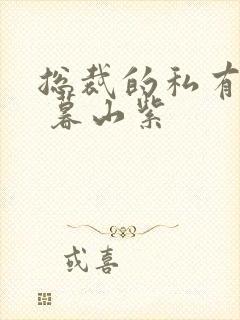 总裁的私有
暮山紫
或喜